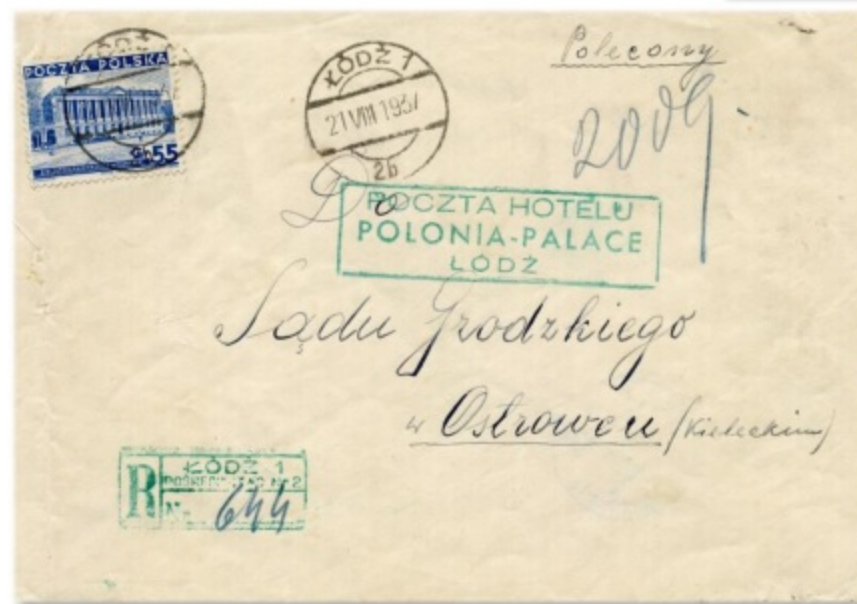 Polecony
POCZTA POLSKA
55
ŁÓDŹ 1
21 VIII 1937
2b
2009
Do
POCZTA HOTELU
POLONIA-PALACE
ŁÓDŹ
Sądu Grodzkiego
w Ostrowcu (Kieleckim)
R
ŁÓDŹ 1
Nr 644